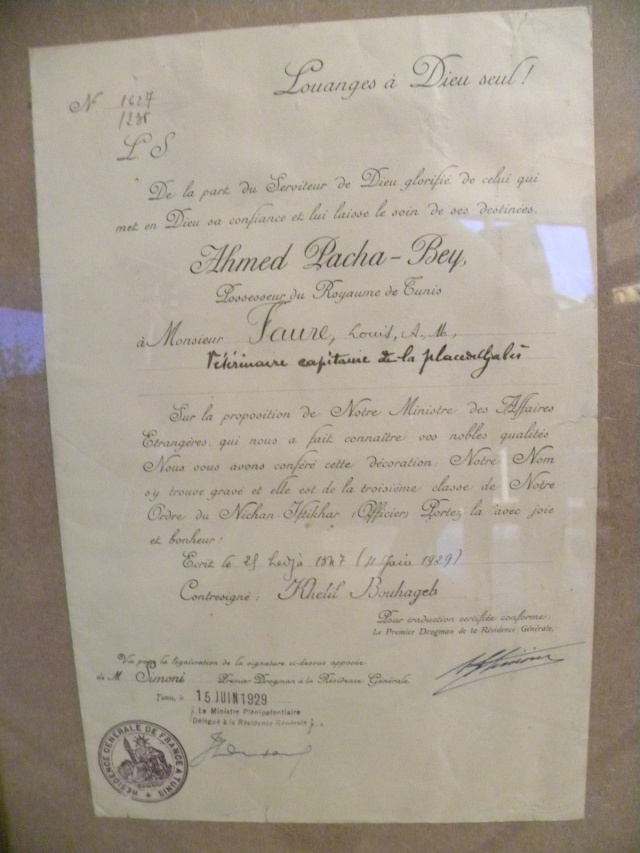 Louanges à Dieu seul !
N° 1627
1238
L S
De la part du Serviteur de Dieu glorifié, de celui qui
met en Dieu sa confiance et lui laisse le soin de ses destinées,
Ahmed Pacha-Bey,
Possesseur du Royaume de Tunis
à Monsieur Faure, Louis, A. M.,
Vétérinaire capitaine de la place de Gabès
Sur la proposition de Notre Ministre des Affaires
Etrangères, qui nous a fait connaître vos nobles qualités
Nous vous avons conféré cette décoration; Notre Nom
s'y trouve gravé et elle est de la troisième classe de Notre
Ordre du Nichan-Iftikhar (Officier) Portez la avec joie
et bonheur !
Ecrit le 25 hedja 1347 (4 Juin 1929)
Contresigné : Khelil Bouhageb
Pour traduction certifiée conforme:
Le Premier Drogman de la Résidence Générale,
Vu pour la légalisation de la signature ci-dessus apposée
de M. Simoni Premier Drogman à la Résidence Générale
Tunis, le 15 JUIN 1929
Le Ministre Plénipotentiaire
Délégué à la Résidence Générale
RÉSIDENCE GÉNÉRALE DE FRANCE A TUNIS